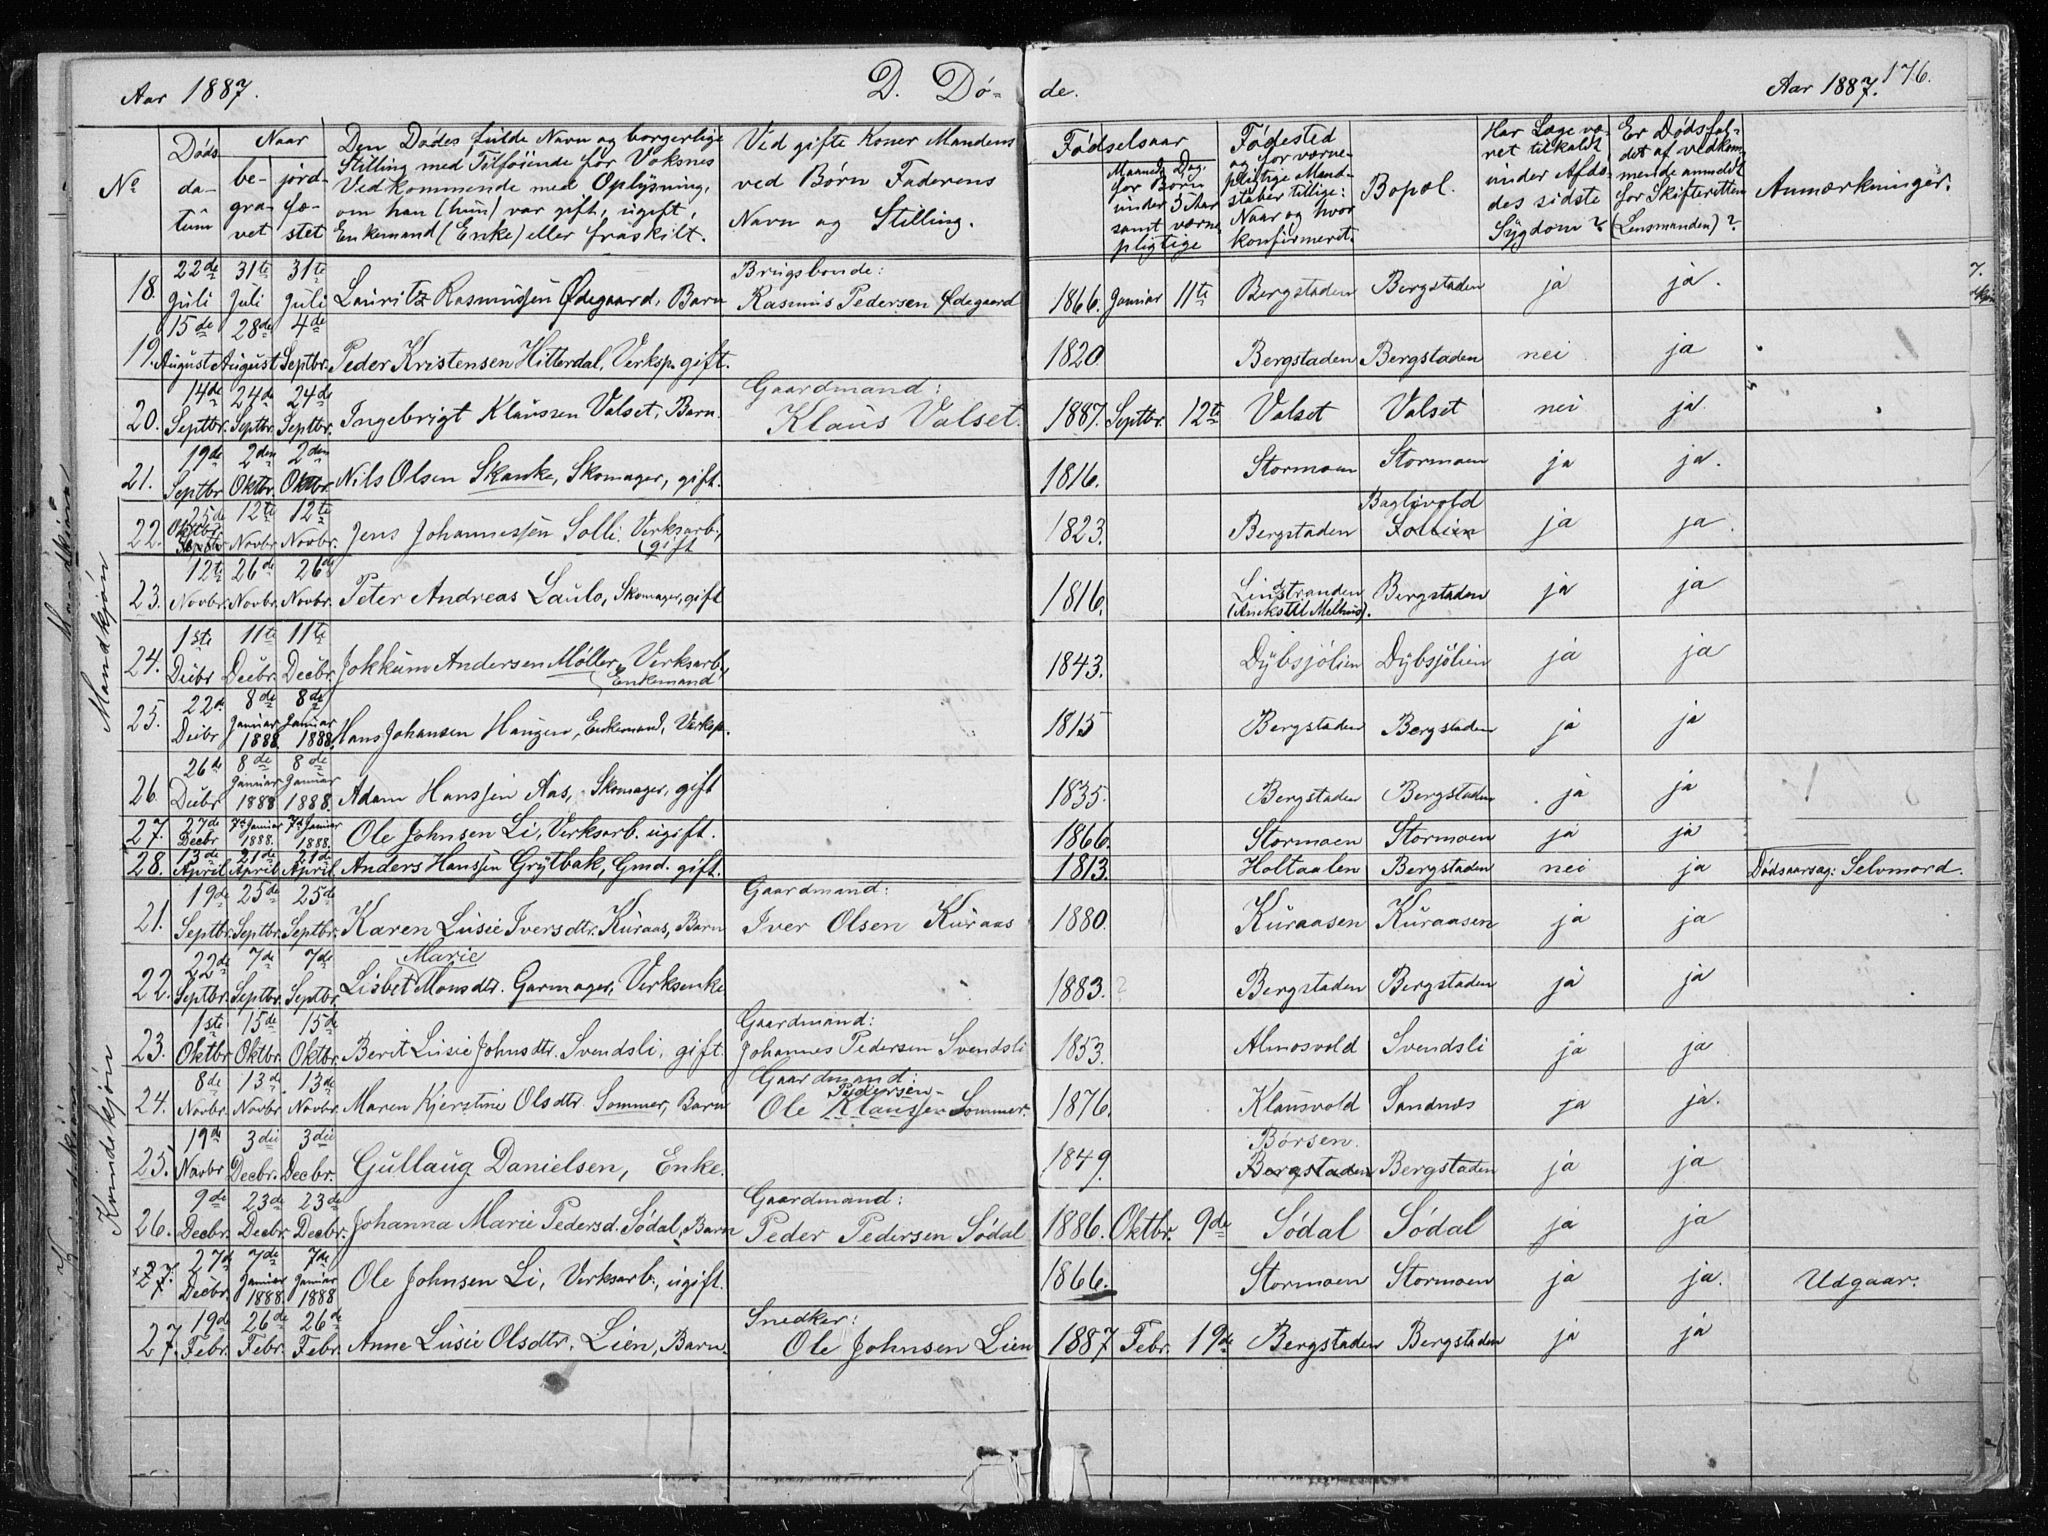 Aar 1887. D. Dö- de. Aar 1887. 176.
No | Döds da- tum | Naar be- gra- vet | jord- fæ- stet | Den Dödes fulde Navn og borgerlige Stilling med Tilföiende for Voksnes Vedkommende med Oplysning, om han (hun) var gift, ugift, Enkemand (Enke) eller fraskilt. | Ved gifte Koner Mandens ved Börn Faderens Navn og Stilling. | Födselsaar | Maaned Dag for Börn under 3 Aar samt værne- pligtige | Födested og for værne- pligtige Mand- skaber tillige: Naar og hvor konfirmeret. | Bopæl. | Har Læge væ- ret tilkaldt under Afdö- des sidste Sygdom? | Er Dödsfal- det af vedkom- mende anmeldt for Skifteretten (Lensmanden)? | Anmærkninger.
Mandkjön
18. | 22de Juli | 31te Juli | 31te Juli | Lauritz Rasmussen Ödegaard, Barn | Brugsbonde: Rasmus Pedersen Ödegaard | 1866. | Januar | 11te | Bergstaden | Bergstaden | ja | ja.
19. | 15de August | 28de August | 4de Septbr. | Peder Kristensen Hitterdal, Verksp. gift. | 1820. | Bergstaden | Bergstaden | nei | ja
20. | 14de Septbr. | 24de Septbr. | 24de Septbr. | Ingebrigt Klaussen Valset, Barn. | Gaardmand: Klaus Valset. | 1887. | Septbr. | 12te | Valset | Valset | nei | ja
21. | 19de Septbr | 2den Oktbr. | 2den Oktbr. | Nils Olsen Skanke, Skomager, gift. | 1816. | Stormoen | Stormoen | ja | ja.
22. | 25de Oktbr | 12te Novbr | 12te Novbr. | Jens Johannessen Solli, Verksarb. gift | 1823. | Bergstaden | Bagtivold | ja | ja.
23. | 12te Novbr. | 26de Novbr. | 26de Novbr. | Peter Andreas Laulo, Skomager, gift | 1816. | Lindstranden (Anekstil Melhus). | Bergstaden | ja | ja
24. | 1ste Decbr | 11te Decbr. | 11te Decbr. | Jokkum Andersen Möller, Verksarb., Enkemand | 1843. | Dybsjölien | Dybsjölien | ja | ja
25. | 22de Decbr | 8de Januar 1888. | 8de Januar 1888. | Hans Johansen Haugen, Enkemand, Verksp. | 1815 | Bergstaden | Bergstaden | ja | ja
26. | 26de Decbr | 8de Januar 1888 | 8de Januar 1888. | Adam Hanssen Aas, Skomager, gift | 1835. | Bergstaden | Bergstaden | ja | ja
27. | 27de Decbr | 7de Januar 1888. | 7de Januar 1888. | Ole Johnsen Li, Verksarb. ugift. | 1866. | Stormoen | Stormoen | ja | ja
28. | 13de April | 21de April | 21de April | Anders Hanssen Grytbak, Gmd. gift. | 1813. | Holtaalen | Bergstaden | nei | ja | Dödsaarsag: Selvmord.
Kvindekjön
21. | 19de Septbr. | 25de Septbr. | 25de Septbr. | Karen Lusie Iversdtr. Kuraas, Barn | Gaardmand: Iver Olsen Kuraas | 1880. | Kuraasen | Kuraasen | ja | ja
22. | 22de Septbr. | 7de Septbr. | 7de Septbr. | Lisbet Marie Monsdtr. Garmager, Verksenke | 1883. ? | Bergstaden | Bergstaden | ja | ja
23. | 1ste Oktbr | 15de Oktbr. | 15de Oktbr. | Berit Lusie Johnsdtr. Svendsli, gift. | Gaardmand: Johannes Pedersen Svendsli | 1853. | Almosvold | Svendsli | ja | ja
24. | 8de Novbr. | 13de Novbr. | 13de Novbr. | Maren Kjerstine Olsdtr. Sommer, Barn | Gaardmand: Ole Pedersen Klaussen Sommer. | 1876. | Klausvold | Sandnæs | ja | ja.
25. | 19de Novbr | 3die Decbr. | 3die Decbr. | Gullaug Danielsen, Enke. | 1849. | Börsen. Bergstaden | Bergstaden | ja | ja
26. | 9de Decbr. | 23de Decbr. | 23de Decbr. | Johanna Marie Pedersd. Södal, Barn | Gaardmand: Peder Pedersen Södal | 1886. | Oktbr. | 9de | Södal | Södal | ja | ja
27. | 27de Decbr. | 7de Januar 1888. | 7de Januar 1888 | Ole Johnsen Li, Verksarb., ugift. | 1866. | Stormoen | Stormoen | ja | ja. | Udgaar.
27. | 19de Febr. | 26de Febr. | 26de Febr. | Anne Lusie Olsdtr. Lien, Barn. | Snedker: Ole Johnsen Lien | 1887 | Febr. | 19de | Bergstaden | Bergstaden | ja | ja